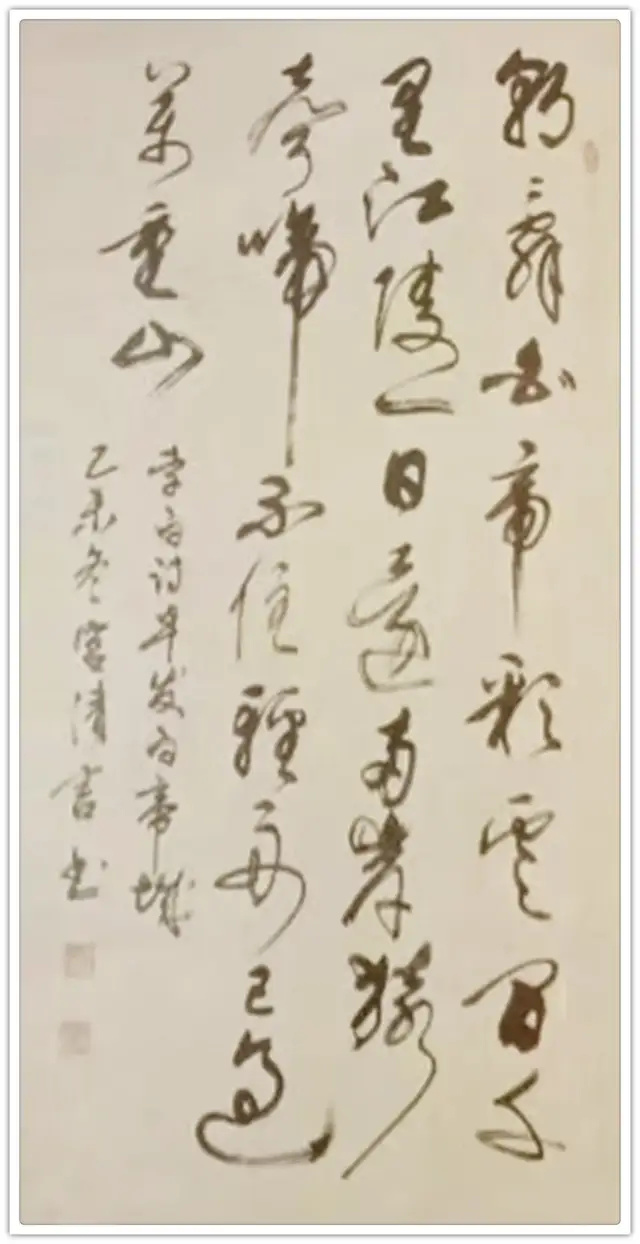 朝辭白帝彩雲間千
里江陵一日還兩岸猿
聲啼不住輕舟已過
萬重山
李白詩早發白帝城
乙未冬清书